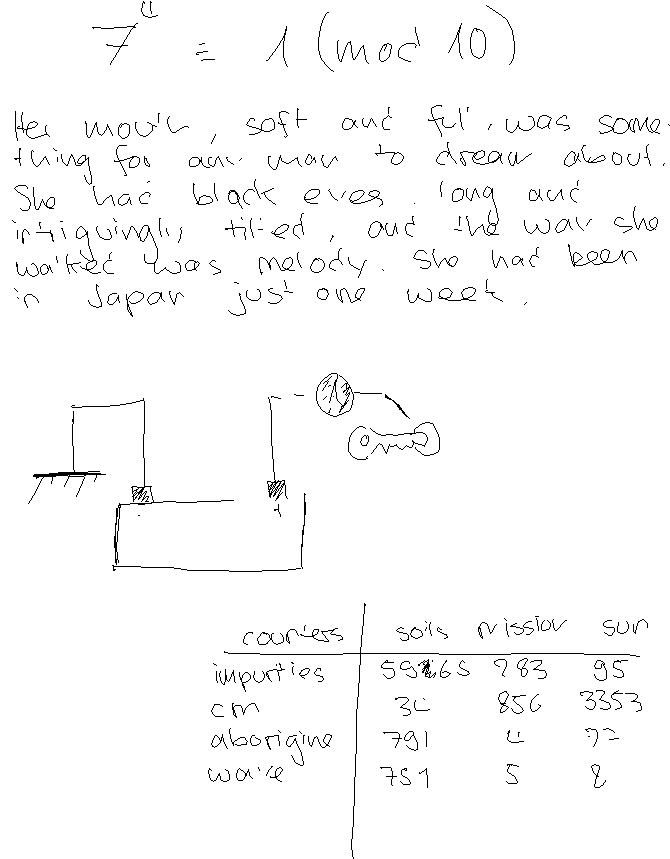 7⁴ = 1 (mod 10)
Her mouth, soft and full, was some-
thing for any man to dream about.
She had black eyes, long and
intriguingly tilted, and the way she
walked was melody. She had been
in Japan just one week.
counters soils mission sun
impurties 59765 283 95
cm 34 856 3353
aborigine 791 4
751 5 8